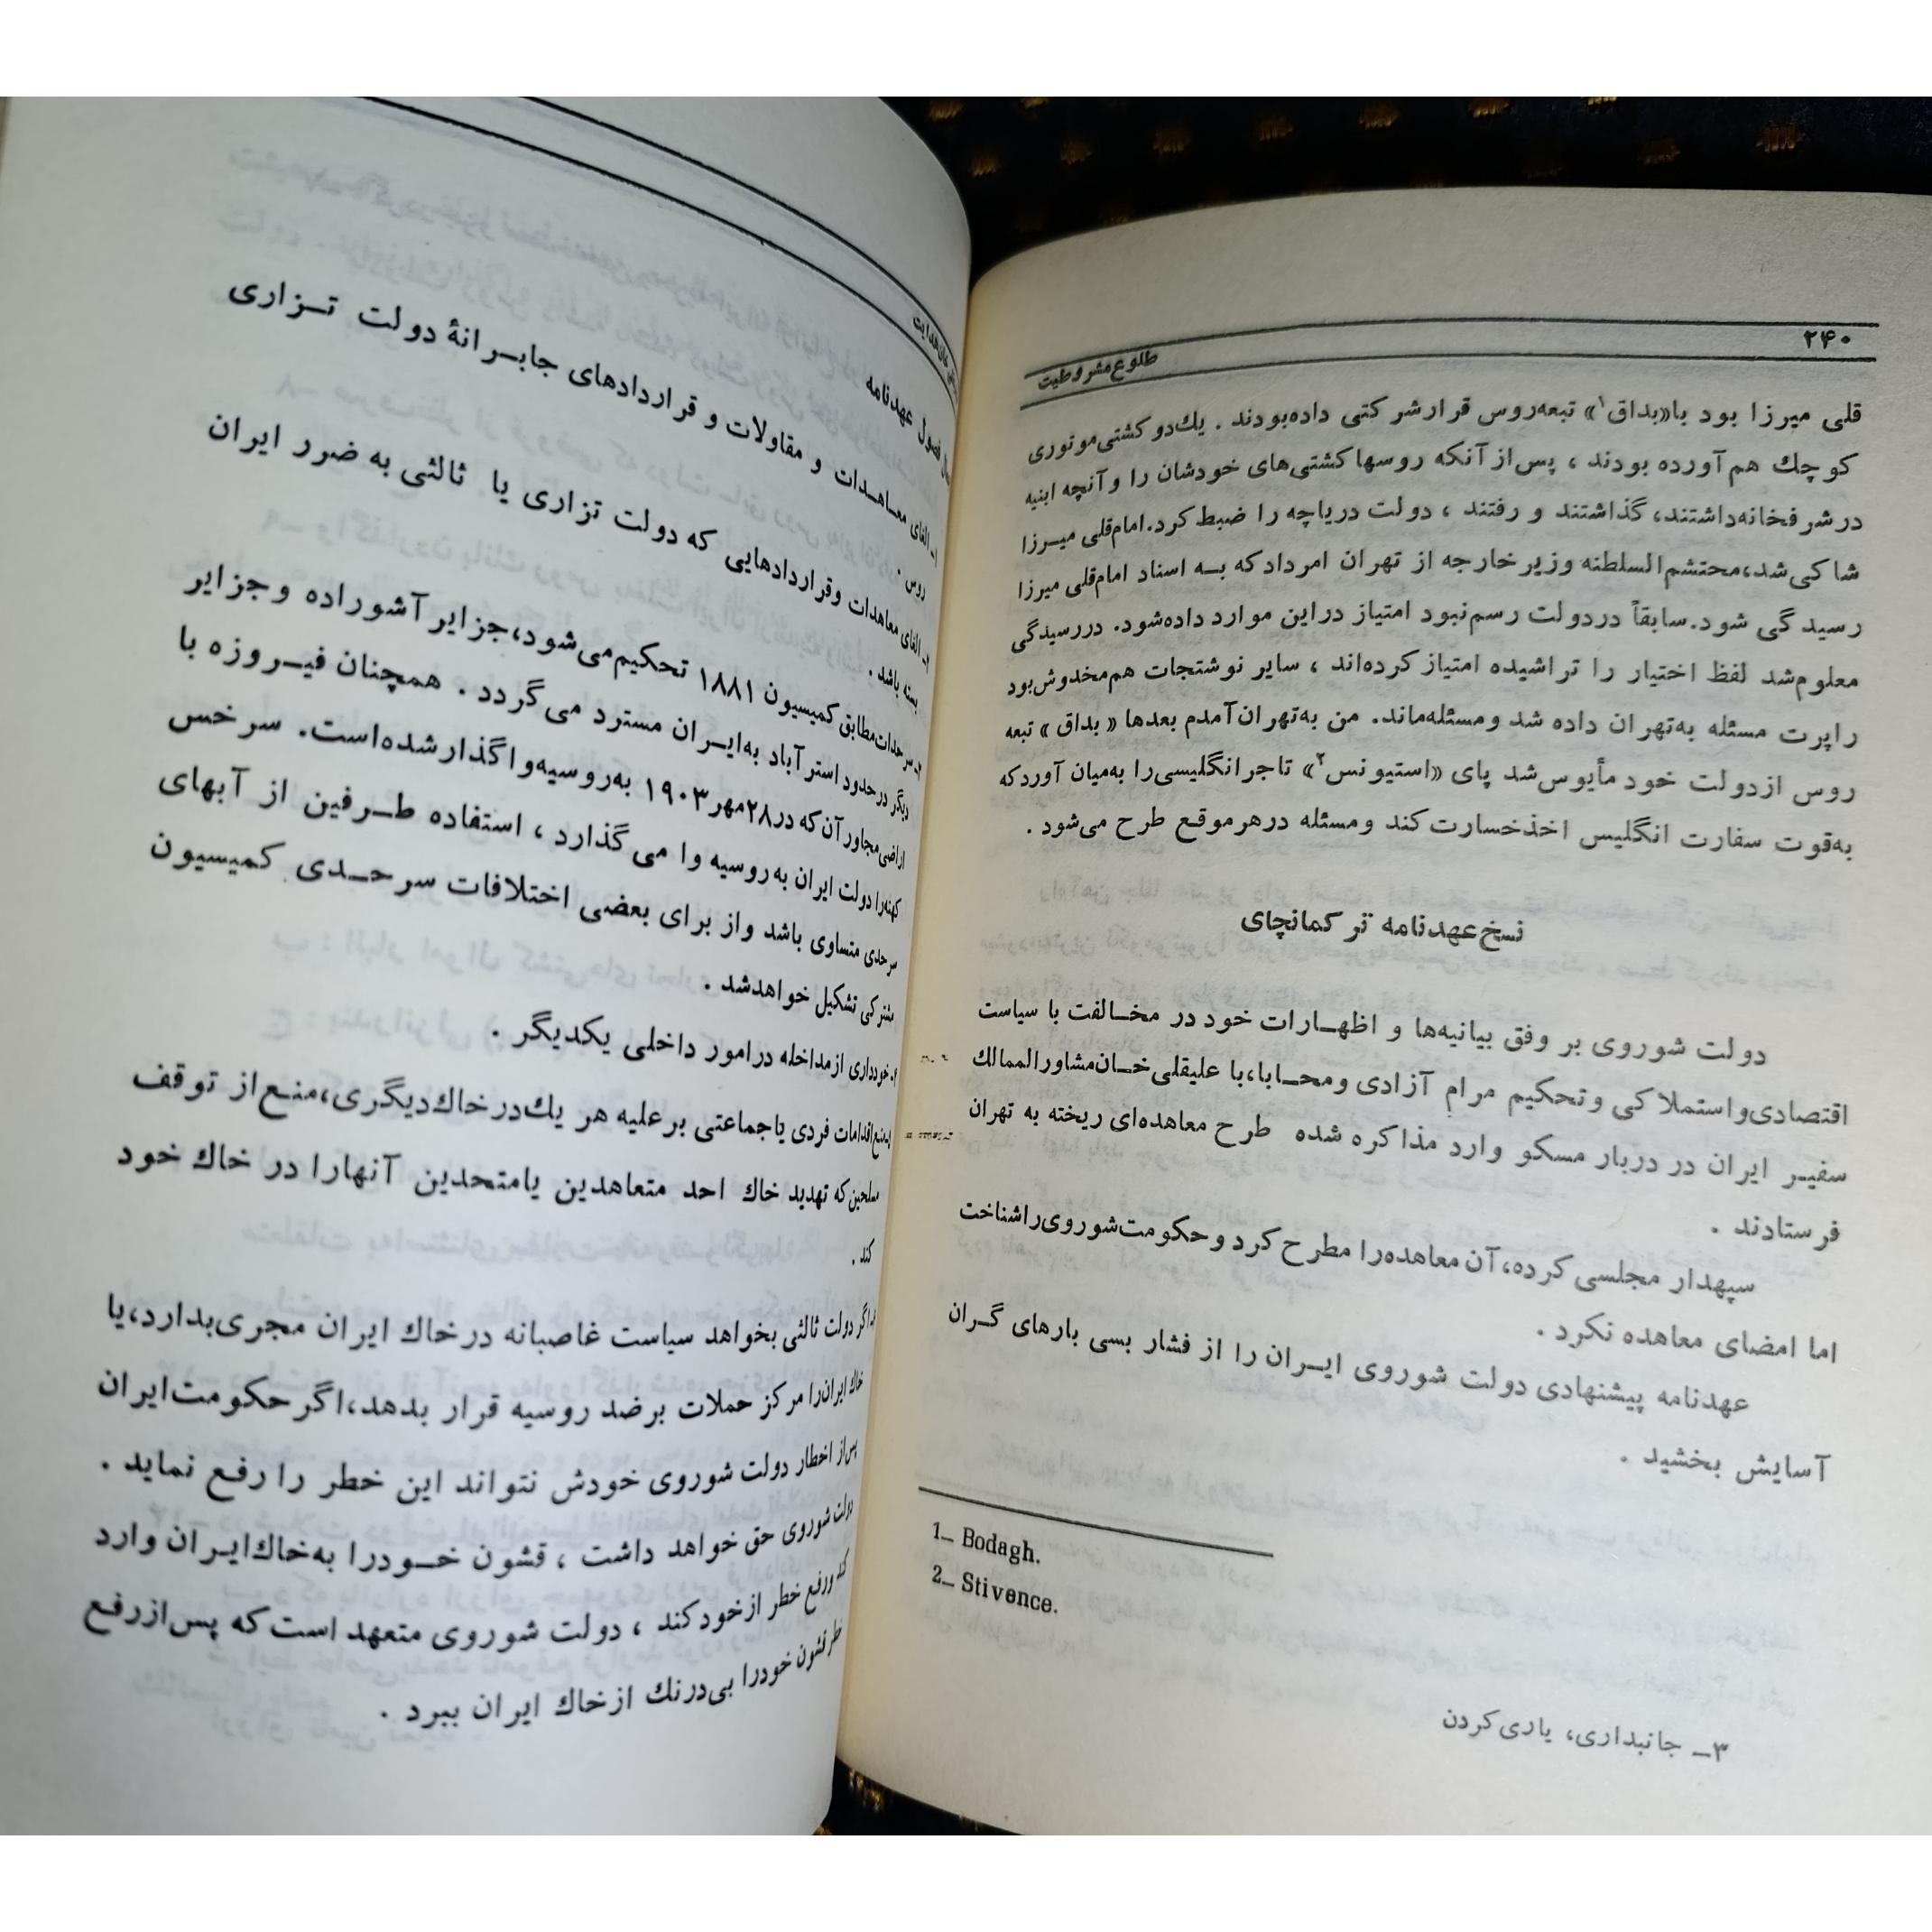 ۲۴۰
طلوع مشروطیت
قلی میرزا بود با«بداق۱» تبعه‌روس قرارشرکتی داده‌بودند . یك‌دوکشتی‌موتوری
کوچك هم‌آورده بودند ، پس‌ازآنکه روسهاکشتی‌های خودشان را وآنچه ابنیه
درشرفخانه‌داشتند، گذاشتند و رفتند ، دولت دریاچه را ضبط کرد.امام‌قلی میـرزا
شاکی‌شد،محتشم‌السلطنه وزیرخارجه از تهران امردادکه بـه اسناد امام‌قلی میرزا
رسیدگی شود.سابقاً دردولت رسم‌نبود امتیاز دراین موارد داده‌شود. دررسیدگی
معلوم‌شد لفظ اختیار را تراشیده امتیازکرده‌اند ، سایر نوشتجات هم‌مخدوش‌بود
راپرت مسئله به‌تهران داده شد ومسئله‌ماند. من به‌تهران‌آمدم بعدها «بداق» تبعه
روس ازدولت خود مأیوس‌شد پای «استیونس۲» تاجرانگلیسی‌را به‌میان آوردکه
به‌قوت سفارت انگلیس اخذخسارت‌کند ومسئله درهرموقع طرح می‌شود .
نسخ‌عهدنامه ترکمانچای
دولت شوروی بر وفق بیانیه‌ها و اظهـارات خود در مخـالفت با سیاست
اقتصادی‌واستملاکی وتحکیم مرام آزادی ومحـابا،با علیقلی‌خـان‌مشاورالممالك
سفیـر ایران در دربار مسکو وارد مذاکره شده طرح معاهده‌ای ریخته به تهران
فرستادند .
سپهدار مجلسی کرده،آن معاهده‌را مطرح کرد وحکومت‌شوروی‌راشناخت
اما امضای معاهده نکرد .
عهدنامه پیشنهادی دولت شوروی ایـران را از فشار بسی بارهای گـران
آسایش بخشید .
1_ Bodagh.
2_ Stivence.
۳_ جانبداری، یاری‌کردن
فصول عهدنامه
۱_ الغای معـاهـدات و مقاولات و قراردادهای جابـرانهٔ دولت تـزاری
روس .
۲_ الغای معاهدات وقراردادهایی که دولت تزاری یا ثالثی به ضرر ایران
بسته باشد .
۳_ سرحدات‌مطابق‌کمیسیون ۱۸۸۱ تحکیم‌می‌شود،جزایر آشوراده وجزایر
دیگر درحدود استرآباد به‌ایـران مسترد می‌گردد . همچنان فیـروزه با
اراضی‌مجاورآن‌که در۲۸مهر۱۹۰۳ به‌روسیه‌واگذارشده‌است. سرخس
کهنه‌را دولت ایران به‌روسیه وا می‌گذارد ، استفاده طـرفین از آبهای
سرحدی متساوی باشد واز برای بعضی اختلافات سرحـدی کمیسیون
مشترکی تشکیل خواهدشد .
خودداری ازمداخله درامور داخلی یکدیگر .
منع‌اقدامات فردی یاجماعتی برعلیه هر یك‌درخاك‌دیگری،منـع‌از توقف
مسلحین‌که تهدید خاك احد متعاهدین یامتحدین آنهارا در خاك خود
کند .
اگر دولت ثالثی بخواهد سیاست غاصبانه درخاك ایران مجری‌بدارد،یا
خاك ایران‌را مرکز حملات برضد روسیه قرار بدهد،اگر حکومت‌ایران
پس‌از اخطار دولت شوروی خودش نتواند این خطر را رفـع نماید .
دولت شوروی حق خواهد داشت ، قشون خـودرا به‌خاك‌ایـران وارد
کند ورفع خطر ازخودکند ، دولت شوروی متعهد است‌که پس‌ازرفـع
خطرقشون خودرا بی‌درنك ازخاك ایران ببرد .